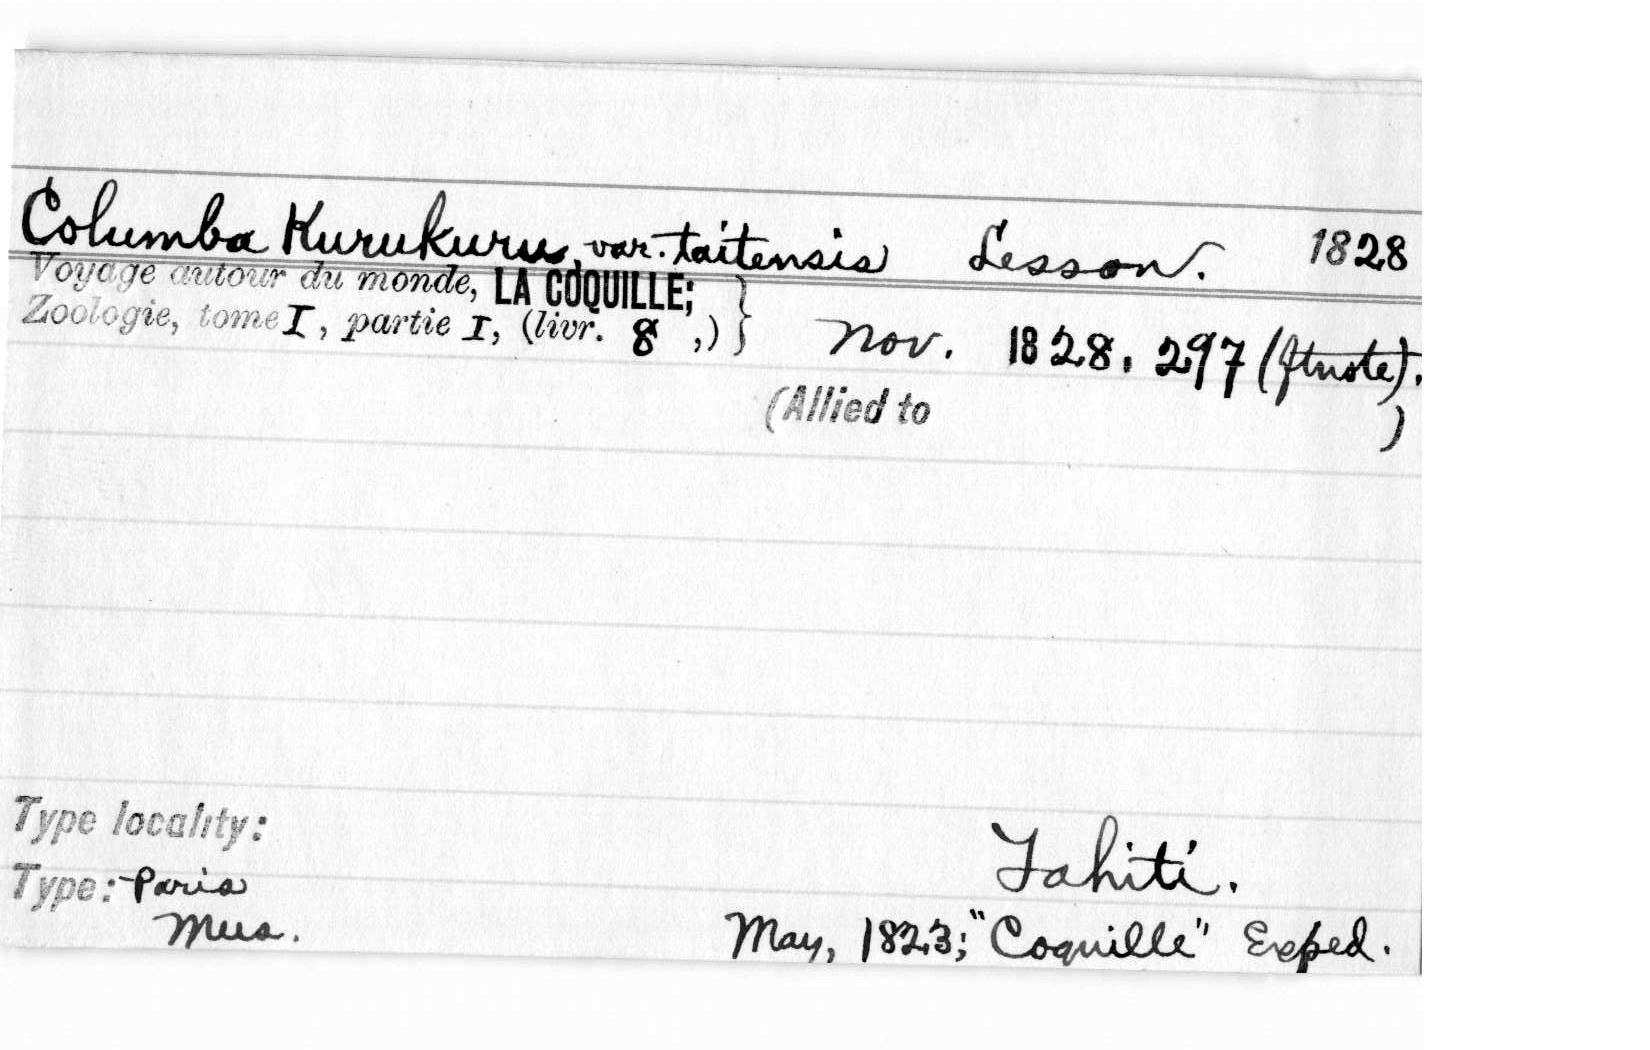 Columba Kurukuru, var. taitensis Lesson. 1828
Voyage autour du monde, LA COQUILLE;
Zoologie, tome I, partie I, (livr. 8 ,) } Nov. 1828, 297 (ftnote).
(Allied to )
Type locality: Tahiti.
Type: Paris
Mus. May, 1823; "Coquille" Exped.